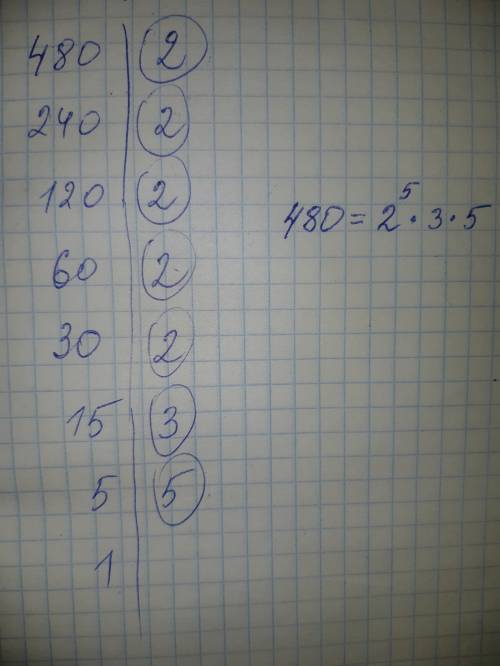 480 | 2
240 | 2
120 | 2
480 = 2⁵ · 3 · 5
60 | 2
30 | 2
15 | 3
5 | 5
1 |